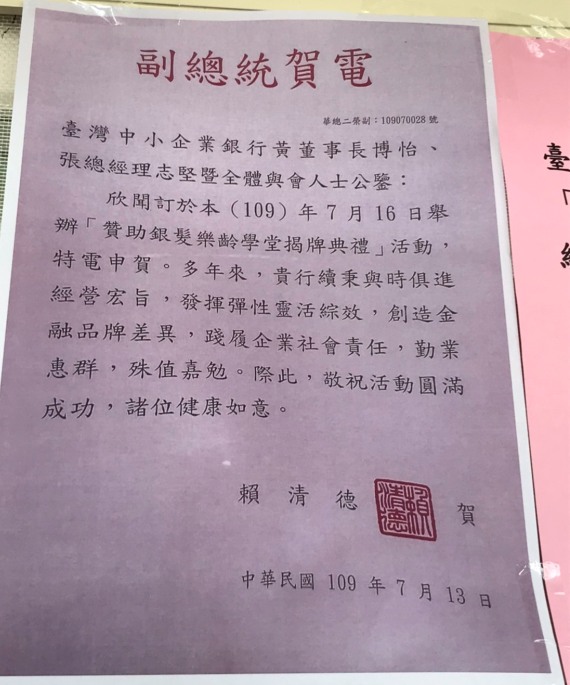 副總統賀電
華總二榮副：109070028 號
臺灣中小企業銀行黃董事長博怡、
張總經理志堅暨全體與會人士公鑒：
欣聞訂於本（109）年 7 月 16 日舉
辦「贊助銀髮樂齡學堂揭牌典禮」活動，
特電申賀。多年來，貴行續秉與時俱進
經營宏旨，發揮彈性靈活綜效，創造金
融品牌差異，踐履企業社會責任，勤業
惠群，殊值嘉勉。際此，敬祝活動圓滿
成功，諸位健康如意。
賴清德 賀
賴清德
中華民國 109 年 7 月 13 日
臺
「